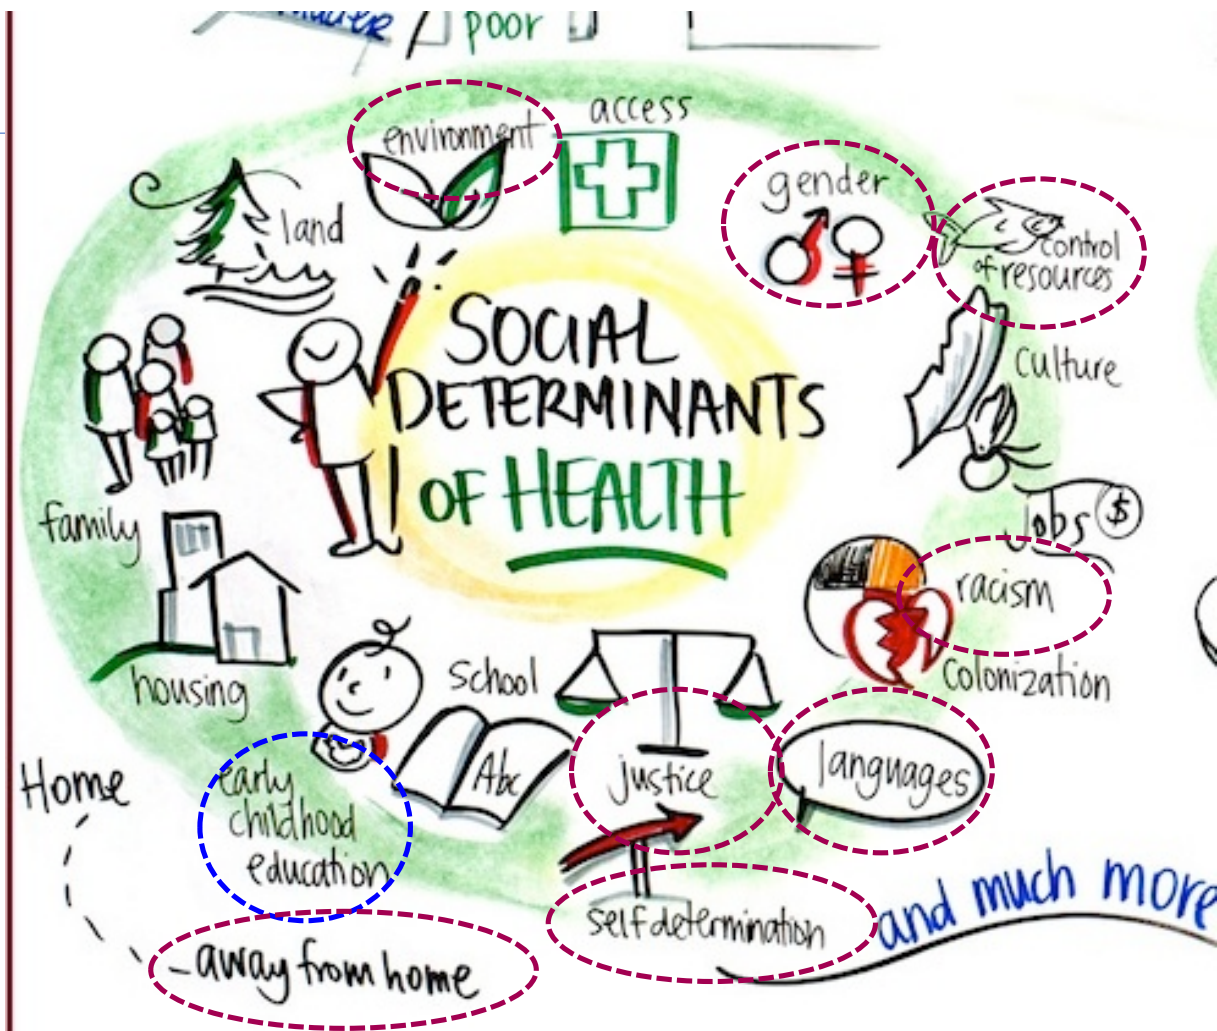 poor
access
environment
gender
land
control
of resources
SOCIAL
DETERMINANTS
OF HEALTH
culture
Jobs $
family
racism
colonization
housing
school
Abc
justice
languages
Home
early
childhood
education
self determination
and much more
away from home